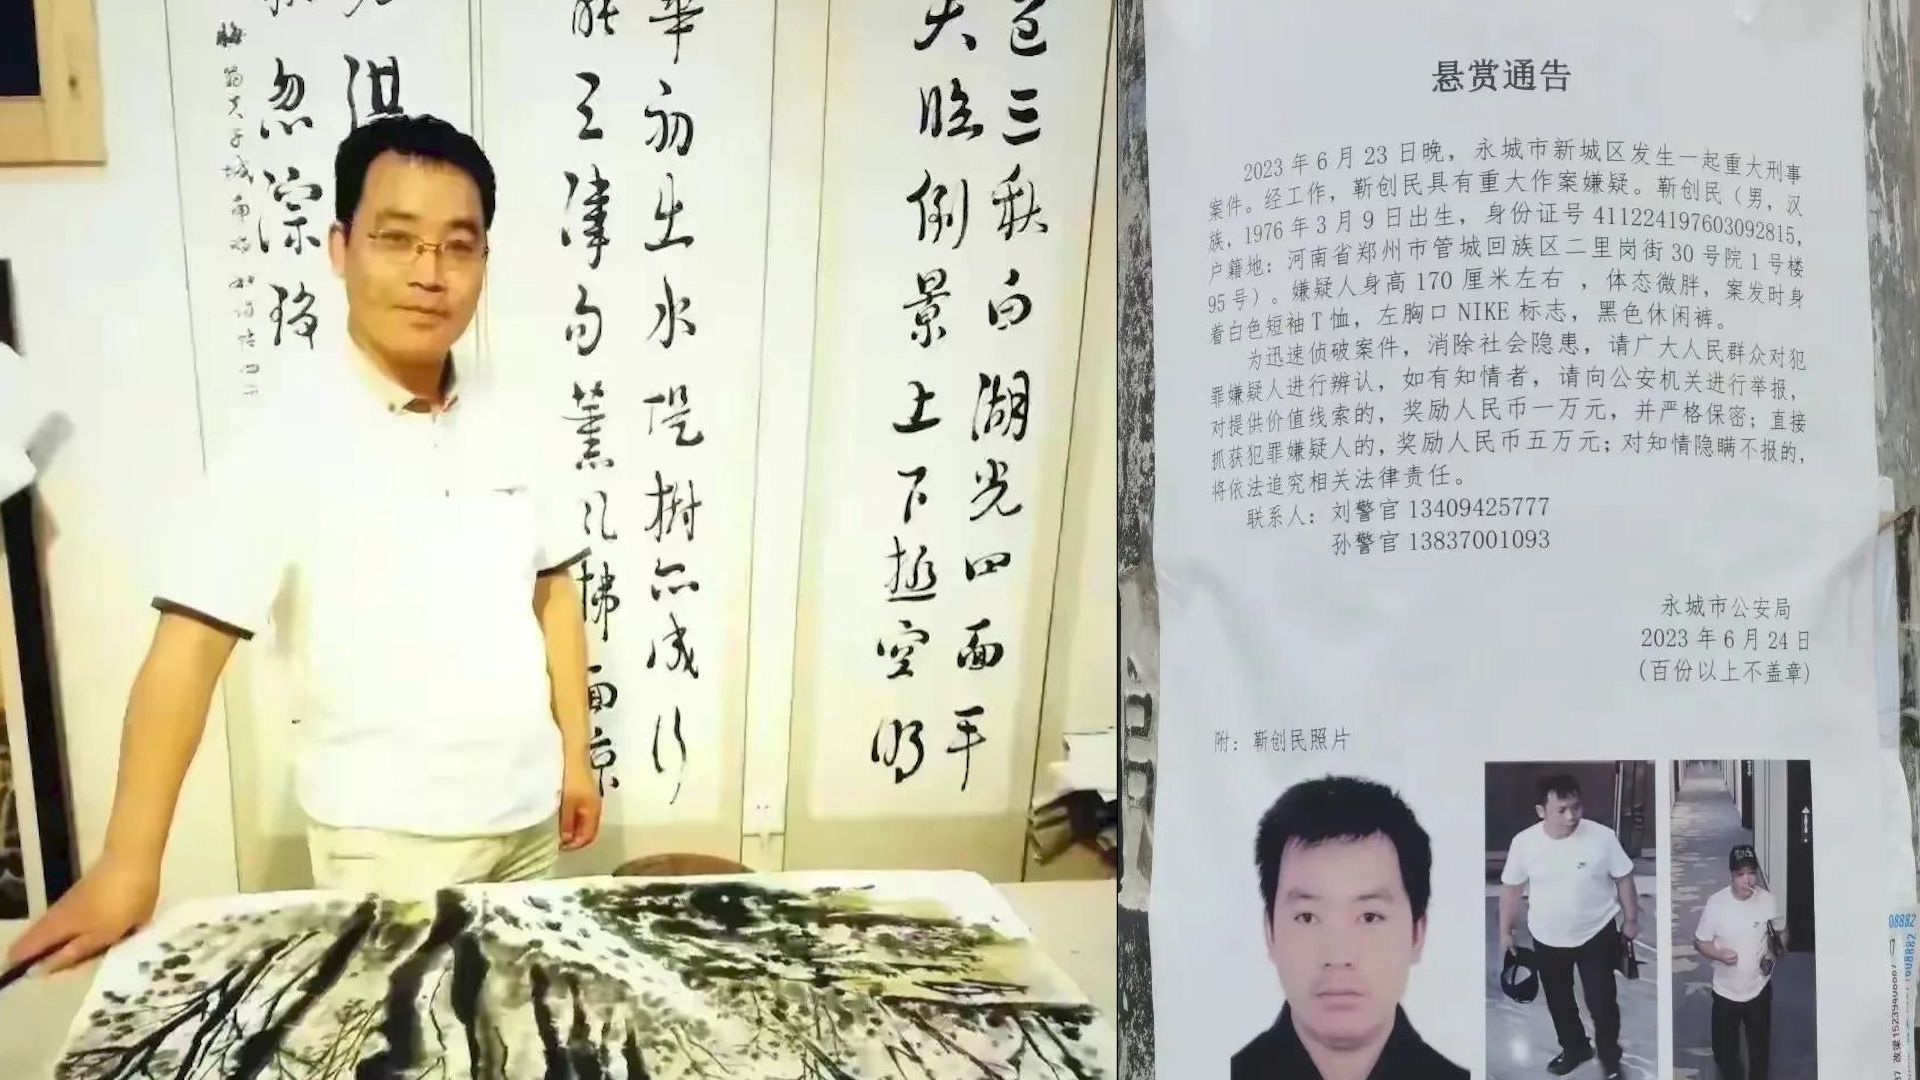 三秋白湖光四面平
大臨倒景上下極空明
華初出水堤樹亦成行
悬赏通告
2023年6月23日晚，永城市新城区发生一起重大刑事
案件。经工作，靳创民具有重大作案嫌疑。靳创民（男，汉
族，1976年3月9日出生，身份证号411224197603092815，
户籍地：河南省郑州市管城回族区二里岗街30号院1号楼
95号）。嫌疑人身高170厘米左右 ，体态微胖，案发时身
着白色短袖T恤，左胸口NIKE标志，黑色休闲裤。
为迅速侦破案件，消除社会隐患，请广大人民群众对犯
罪嫌疑人进行辨认，如有知情者，请向公安机关进行举报，
对提供价值线索的，奖励人民币一万元，并严格保密；直接
抓获犯罪嫌疑人的，奖励人民币五万元；对知情隐瞒不报的，
将依法追究相关法律责任。
联系人：刘警官 13409425777
孙警官 13837001093
永城市公安局
2023年6月24日
(百份以上不盖章)
附：靳创民照片